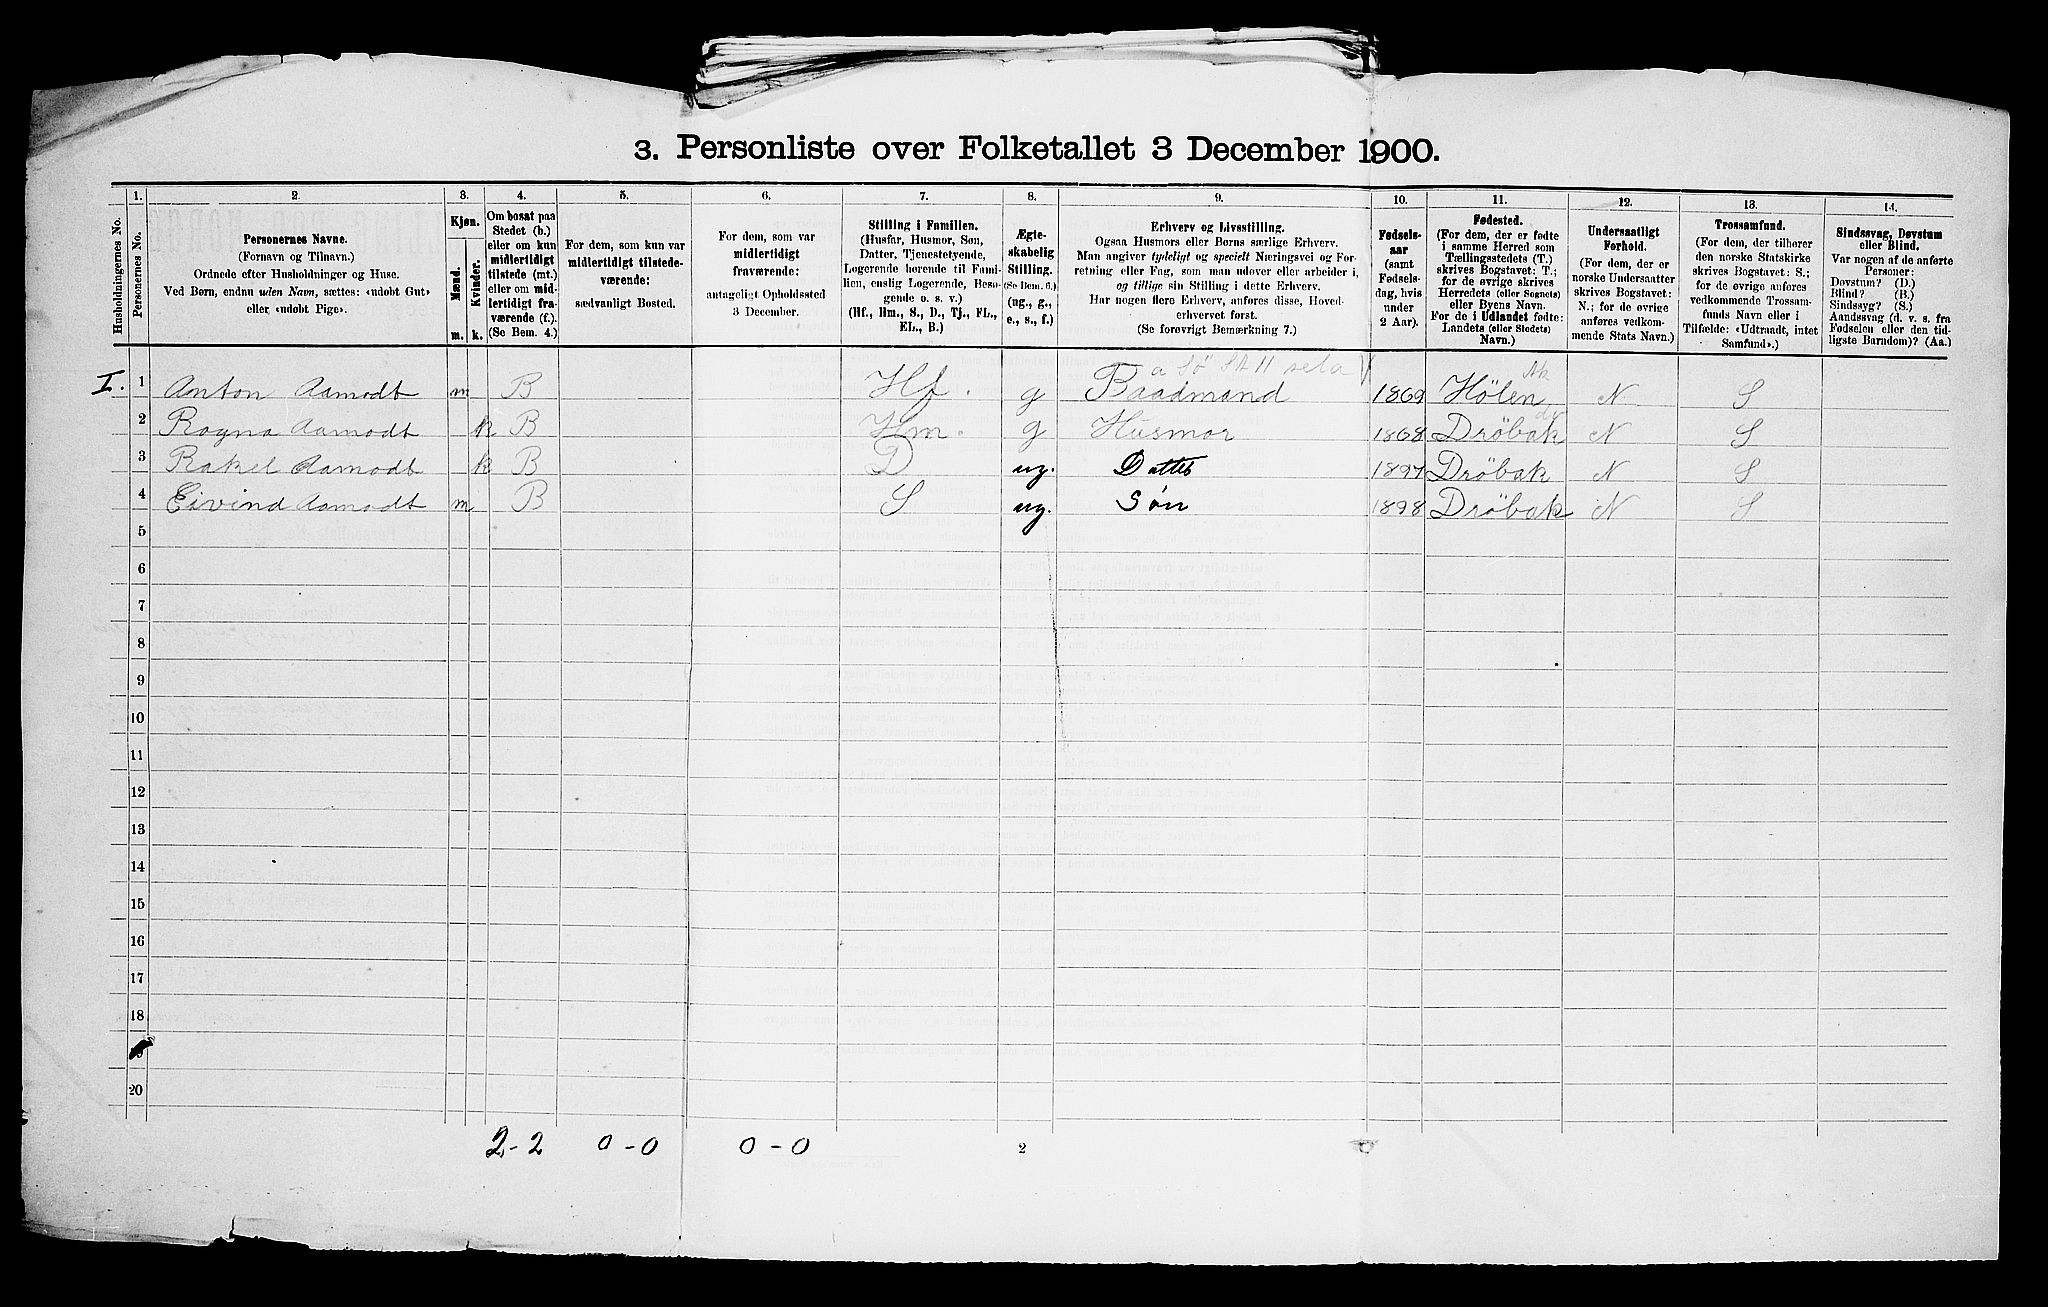 3. Personliste over Folketallet 3 December 1900.
Husholdningernes No.
1.
Personernes No.
2.
Personernes Navne.
(Fornavn og Tilnavn.)
Ordnede efter Husholdninger og Huse.
Ved Børn, endnu uden Navn, sættes: «udøbt Gut»
eller «udøbt Pige».
3.
Kjøn.
Mænd.
Kvinder.
m. k.
4.
Om bosat paa
Stedet (b.)
eller om kun
midlertidigt
tilstede (mt.)
eller om mid-
lertidigt fra-
værende (f.).
(Se Bem. 4.)
5.
For dem, som kun var
midlertidigt tilstede-
værende:
sædvanligt Bosted.
6.
For dem, som var
midlertidigt
fraværende:
antageligt Opholdssted
3 December.
7.
Stilling i Familien.
(Husfar, Husmor, Søn,
Datter, Tjenestetyende,
Logerende hørende til Fami-
lien, enslig Logerende, Besø-
gende o. s. v.)
(Hf., Hm., S., D., Tj., FL.,
EL., B.)
8.
Ægte-
skabelig
Stilling.
(Se Bem. 6.)
(ug., g.,
e., s., f.)
9.
Erhverv og Livsstilling.
Ogsaa Husmors eller Børns særlige Erhverv.
Man angiver tydeligt og specielt Næringsvei og For-
retning eller Fag, som man udover eller arbeider i,
og tillige sin Stilling i dette Erhverv.
Har nogen flere Erhverv, anføres disse, Hoved-
erhvervet først.
(Se forøvrigt Bemærkning 7.)
10.
Fødsels-
aar
(samt
Fødsels-
dag, hvis
under
2 Aar).
11.
Fødested.
(For dem, der er fødte
i samme Herred som
Tællingsstedets (T.)
skrives Bogstavet: T.;
for de øvrige skrives
Herredets (eller Sognets)
eller Byens Navn.
For de i Udlandet fødte:
Landets (eller Stedets)
Navn.)
12.
Undersaatligt
Forhold.
(For dem, der er
norske Undersaatter
skrives Bogstavet:
N.; for de øvrige
anføres vedkom-
mende Stats Navn.)
13.
Trossamfund.
(For dem, der tilhører
den norske Statskirke
skrives Bogstavet: S.;
for de øvrige anføres
vedkommende Trossam-
funds Navn eller i
Tilfælde: «Udtraadt, intet
Samfund».)
14.
Sindssvag, Døvstum
eller Blind.
Var nogen af de anførte
Personer:
Døvstum? (D.)
Blind? (B.)
Sindssyg? (S.)
Aandssvag (d. v. s. fra
Fødselen eller den tid-
ligste Barndom)? (Aa.)
I. 1 Anton Aamodt m B Hf. g Baadmand 1869 Hølen Ak N S
2 Ragna Aamodt k B Hm. g Husmor 1868 Dröbak do N S
3 Rakel Aamodt k B D ug. Datter 1897 Dröbak N S
4 Eivind Aamodt m B S ug. Søn 1898 Dröbak N S
5
6
7
8
9
10
11
12
13
14
15
16
17
18
19
20
2-2 0-0 0-0
2